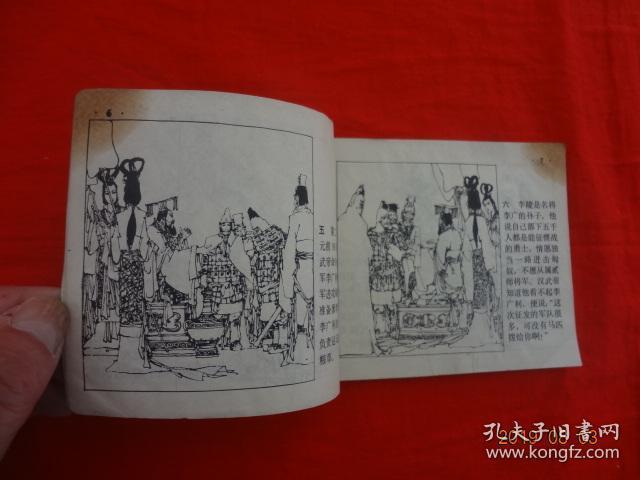 6
五
元前
武帝
军李广
李广利
六 李陵是名将
李广的孙子，他
说自己部下五千
人都是能征惯战
的勇士，情愿独
当一路进击匈
奴，不愿从属贰
师将军。汉武帝
知道他看不起李
广利，便说：“这
次征发的军队很
多，可没有马匹
拨给你啊！”
孔夫子旧书网
www.kongfz.com
2019 05 03